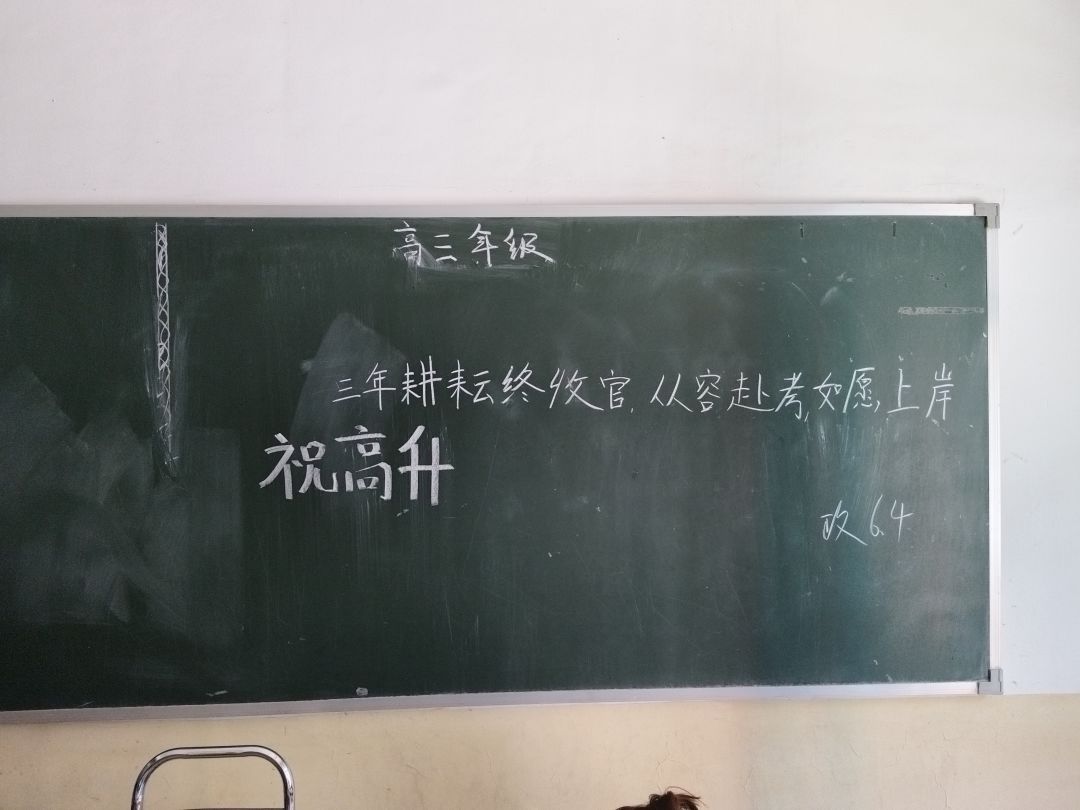 高三年级
三年耕耘终收官,从容赴考,如愿上岸
祝高升
政 6.4